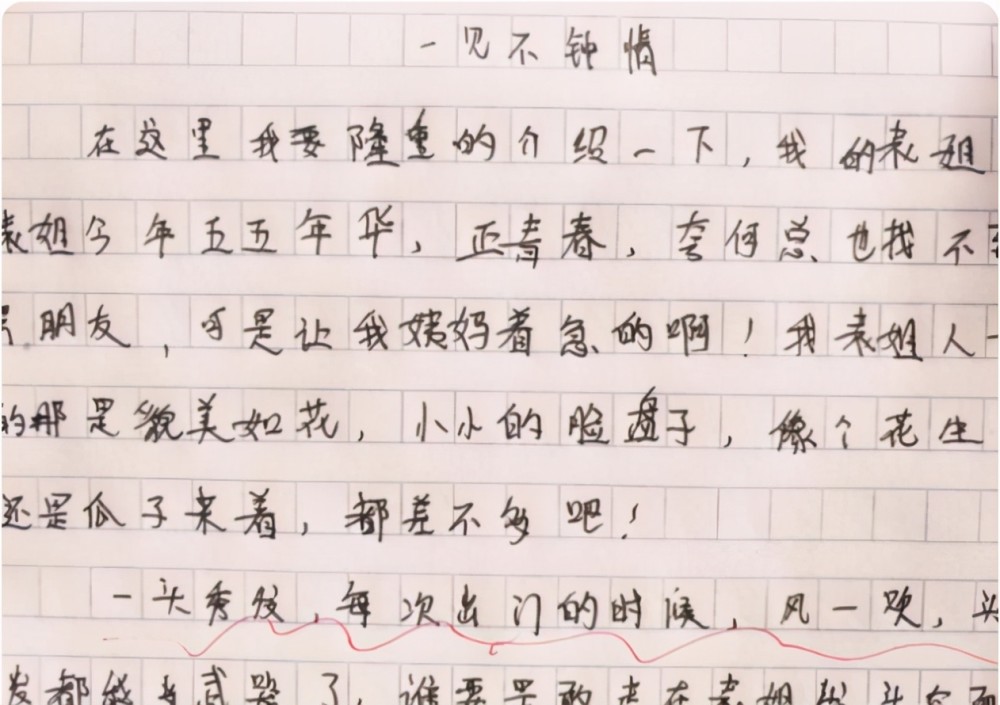 一见不钟情
在这里我要隆重的介绍一下，我的表姐
表姐今年五五年华，正青春，奈何总也找不
朋友，可是让我姨妈着急的啊！我表姐人
的那是貌美如花，小小的脸盘子，像个花生
还是瓜子来着，都差不多吧！
一头秀发，每次出门的时候，风一吹，头
发都能当武器了，谁要是敢走在表姐